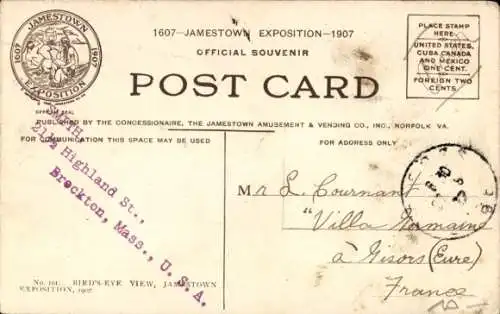 JAMESTOWN
1607 1907
EXPOSITION
OFFICIAL SEAL
1607—JAMESTOWN EXPOSITION—1907
OFFICIAL SOUVENIR
POST CARD
PLACE STAMP
HERE
UNITED STATES,
CUBA CANADA
AND MEXICO
ONE CENT.
FOREIGN TWO
CENTS.
PUBLISHED BY THE CONCESSIONAIRE, THE JAMESTOWN AMUSEMENT & VENDING CO., INC., NORFOLK VA.
FOR COMMUNICATION THIS SPACE MAY BE USED
FOR ADDRESS ONLY
Highland St.,
Brockton, Mass., U. S. A.
Mr L. Cournant
"Villa Germaine
à Gisors (Eure)
France
No. 101. BIRD'S-EYE VIEW, JAMESTOWN
EXPOSITION, 1907